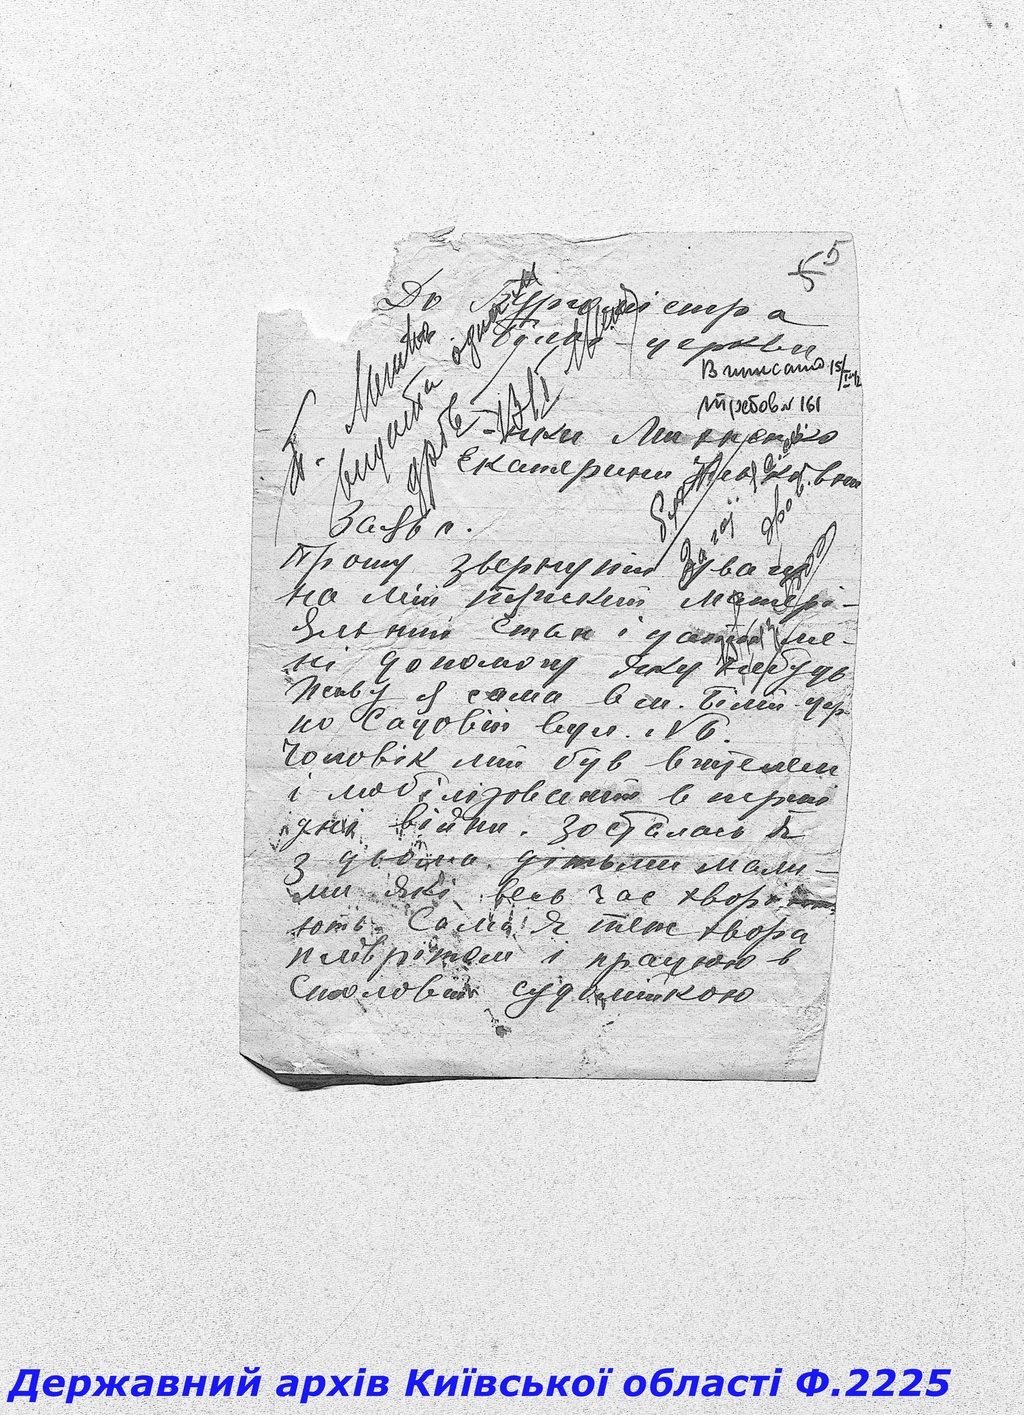 5
До Бургомістра
Білої-церкви
Виписано 15/III 42
Требов № 161
Т.
видати одног
-нки Михненко
Екатерини
Заява.
Прошу звернути увагу
на мій тяжкий матері-
яльний стан і дати ме-
ні допомогу яку небудь
Живу я сама в м. Білій-цер-
по Садовій вул. № 6.
Чоловік мій був вчителем
і мобілізований в перші
дні війни. Зосталась я
з двома дітьми мали-
ми які весь час хворі
ють. Сама я теж хвора
плеврітом і працюю в
столовій судомійкою
Державний архів Київської області Ф.2225